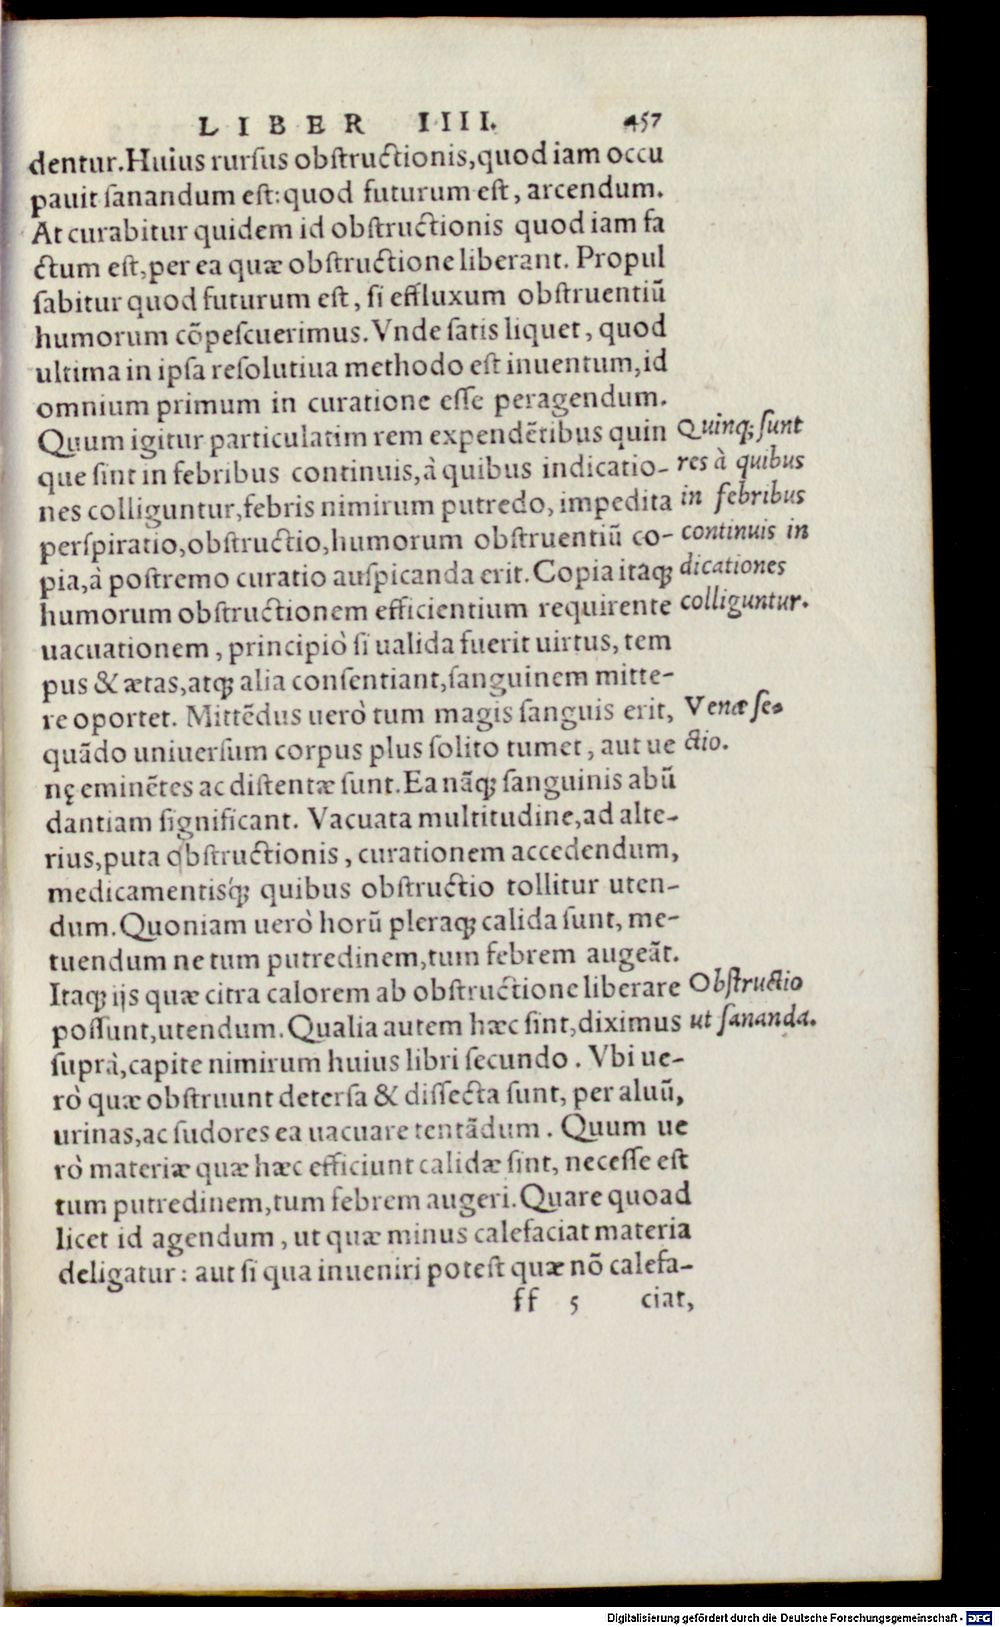 LIBER IIII. 457
dentur. Huius rursus obstructionis, quod iam occu
pauit sanandum est: quod futurum est, arcendum.
At curabitur quidem id obstructionis quod iam fa
ctum est, per ea quæ obstructione liberant. Propul
sabitur quod futurum est, si effluxum obstruentiũ
humorum cõpescuerimus. Vnde satis liquet, quod
ultima in ipsa resolutiua methodo est inuentum, id
omnium primum in curatione esse peragendum.
Quum igitur particulatim rem expendẽtibus quin
que sint in febribus continuis, à quibus indicatio-
nes colliguntur, febris nimirum putredo, impedita
perspiratio, obstructio, humorum obstruentiũ co-
pia, à postremo curatio auspicanda erit. Copia itaq;
humorum obstructionem efficientium requirente
uacuationem, principiò si ualida fuerit uirtus, tem
pus & ætas, atq; alia consentiant, sanguinem mitte-
re oportet. Mittẽdus uerò tum magis sanguis erit,
quãdo uniuersum corpus plus solito tumet, aut ue
nę eminẽtes ac distentæ sunt. Ea nãq; sanguinis abũ
dantiam significant. Vacuata multitudine, ad alte-
rius, puta obstructionis, curationem accedendum,
medicamentisq́; quibus obstructio tollitur uten-
dum. Quoniam uerò horũ pleraq; calida sunt, me-
tuendum ne tum putredinem, tum febrem augeãt.
Itaq; ijs quæ citra calorem ab obstructione liberare
possunt, utendum. Qualia autem hæc sint, diximus
suprà, capite nimirum huius libri secundo. Vbi ue-
rò quæ obstruunt detersa & dissecta sunt, per aluũ,
urinas, ac sudores ea uacuare tentãdum. Quum ue
rò materiæ quæ hæc efficiunt calidæ sint, necesse est
tum putredinem, tum febrem augeri. Quare quoad
licet id agendum, ut quæ minus calefaciat materia
deligatur: aut si qua inueniri potest quæ nõ calefa-
ff 5 ciat,
Quinq; sunt
res à quibus
in febribus
continuis in
dicationes
colliguntur.
Venæ se-
ctio.
Obstructio
ut sananda.
Digitalisierung gefördert durch die Deutsche Forschungsgemeinschaft - DFG